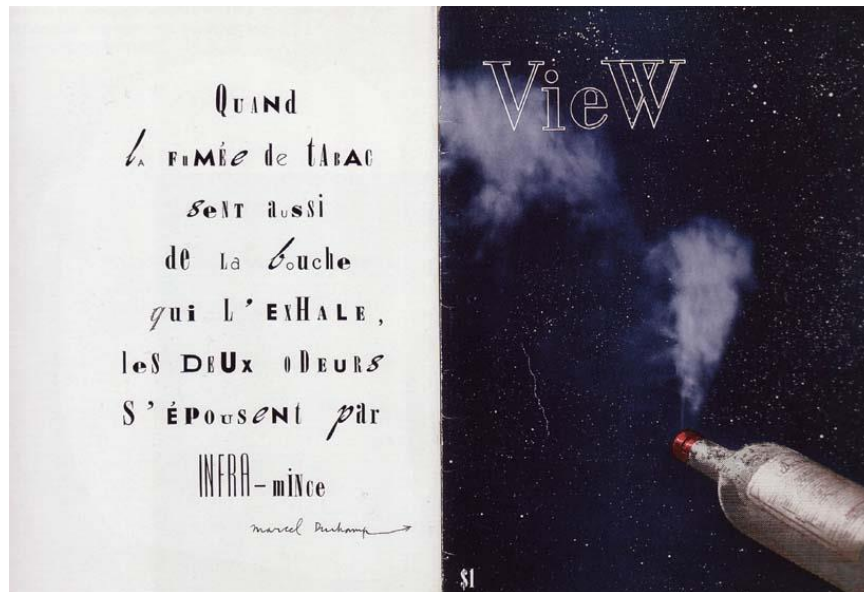 QUAND
lA FUMÉe de tABAC
seNT aussi
de La bouche
qui L'EXHALE,
les DEUX ODEURS
S'ÉPOUSeNt par
INFRA-miNce
marcel Duchamp
VieW
$1